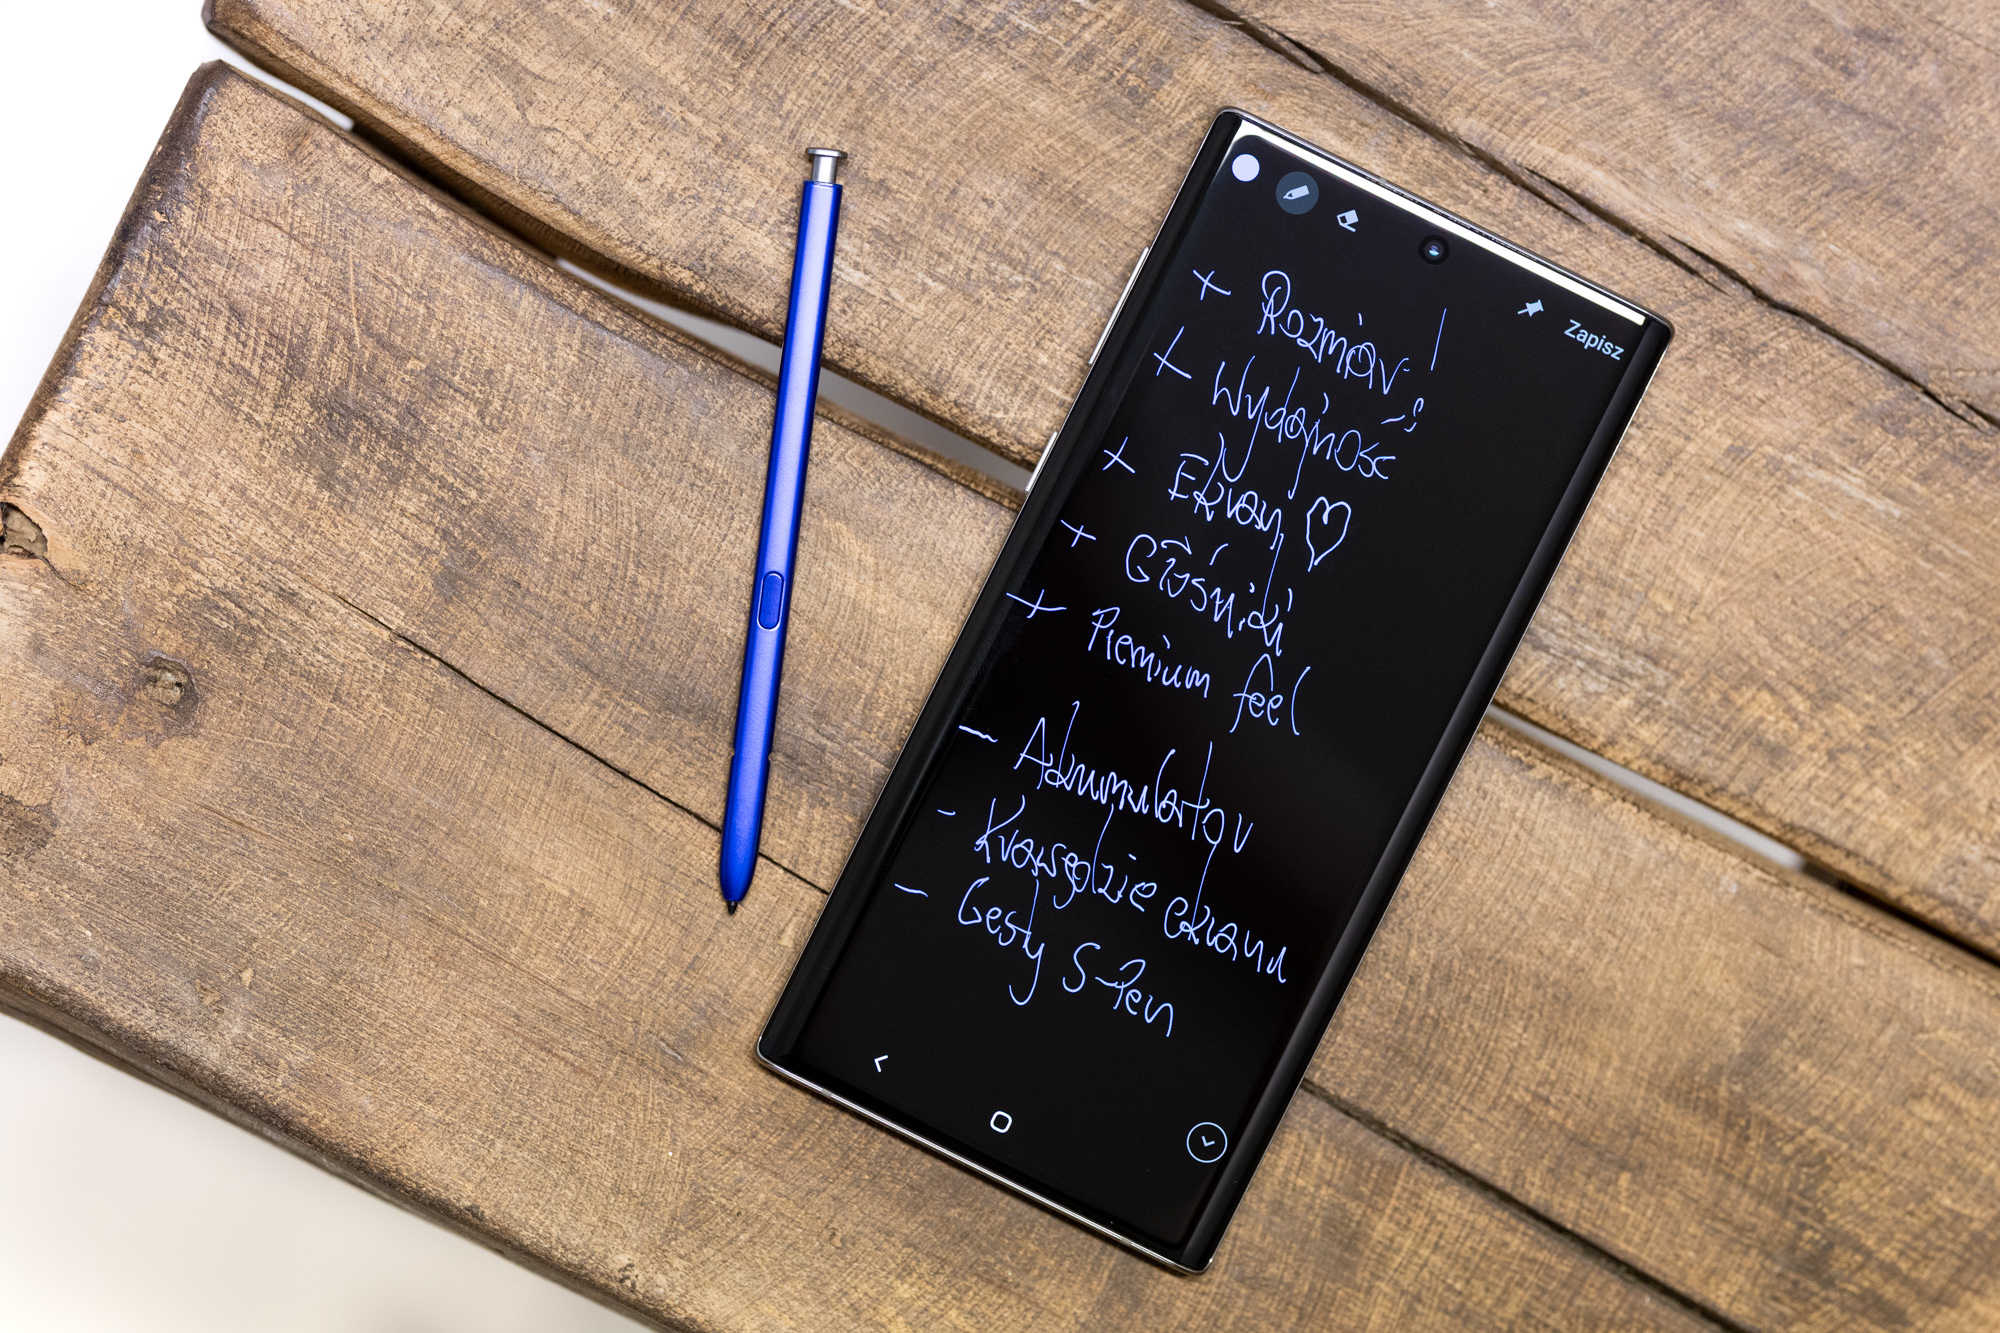 Zapisz
+ Rozmiar !
+ Wydajność
+ Ekran ♡
+ Głośniki
+ Premium feel
- Akumulator
- Krawędzie ekranu
- Gesty S-Pen